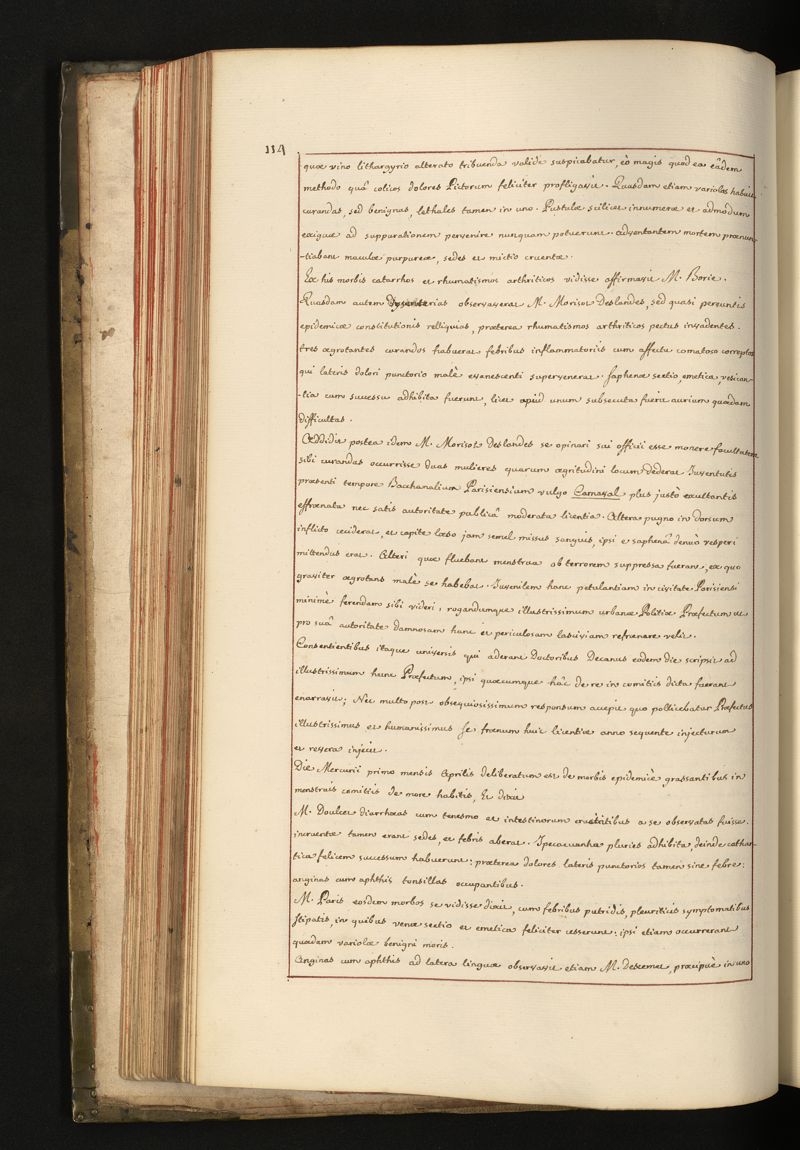 114
quæ vino lithargyrio alterato tribuenda valide suspicabatur, eò magis quod ea eâdem
methodo quâ colicos dolores Pictorum feliciter profligavit. Quasdam etiam variolas habuit
curandas, sed benignas, lethales tamen in uno. Pustulæ scilicet innumeræ et admodum
exiguæ ad suppurationem pervenire nunquam potuerunt. adventantem mortem prænun-
-tiabant maculæ purpureæ, sedes et mictio cruentæ.
Ex his morbis catarrhos et rhumatismos arthriticos vidisse affirmavit M. Borie.
Quasdam autem Dysenterias observaverat M. Morisot Deslandes, sed quasi pereuntis
epidemicæ constitutionis relliquias, præterea rhumatismos arthriticos pectus invadentes.
tres ægrotantes curandos habuerat febribus inflammatoriis cum affectu comatoso correptos
qui lateris dolori punctorio malè evanescenti supervenerat. Saphenæ sectio, emetica, vesican-
-tia cum successu adhibita fuerunt, licet apud unum subsecuta fuerit aurium quædam
difficultas.
Addidit postea idem M. Morisot Deslandes se opinari sui officii esse monere facultatem
sibi curandas occurrisse duas mulieres quarum ægritudini locum dederat Juventutis
præsenti tempore Bacchanalium Parisiensium vulgo Carnaval plus justò exultantis
effrænata nec satis autoritate publicâ moderata licentia. Altera pugno in dorsum
inflicto ceciderat, et capite læso jam semel missus sanguis, ipsi e saphenâ denuò vesperi
mittendus erat. Alteri quæ fluebant menstrua ob terrorem suppressa fuerant, ex quo
graviter ægrotans malè se habebat. Juvenilem hanc petulantiam in civitate Parisiensi
minimè ferendam sibi videri, rogandumque illustrissimum urbanæ Politiæ Præfectum ut
pro suâ autoritate damnosam hanc et periculosam lasciviam refrænare velit.
Consentientibus itaque universis qui aderant Doctoribus Decanus eodem die scripsit ad
illustrissimum hunc Præfectum, ipsi quæcumque hâc de re in comitiis dicta fuerant
enarravit; Nec multo post obsequiosissimum responsum accepit quo pollicebatur Præfectus
illustrissimus et humanissimus se frænum huic licentiæ anno sequente injecturum
et revera injecit.
Die Mercurii primo mensis Aprilis deliberatum est de morbis epidemicè grassantibus in
menstruis comitiis de more habitis, Et dixit
M. Doulcet diarrhœas cum tenesmo et intestinorum cruciatibus a se observatas fuisse.
incruentæ tamen erant sedes, et febris aberat. Ipecacuanha pluries adhibita, deinde cathar-
tica felicem successum habuerunt: præterea dolores lateris punctorios tamen sine febre:
anginas cum aphthis tonsillas occupantibus.
M. Paris eosdem morbos se vidisse dixit, cum febribus putridis, pleuriticis symptomatibus
stipatis, in quibus venæ sectio et emetica feliciter cesserunt: ipsi etiam occurrerant
quædam variolæ benigni moris.
Anginas cum aphthis ad latera linguæ observavit etiam M. Descemet, præcipuè in uno